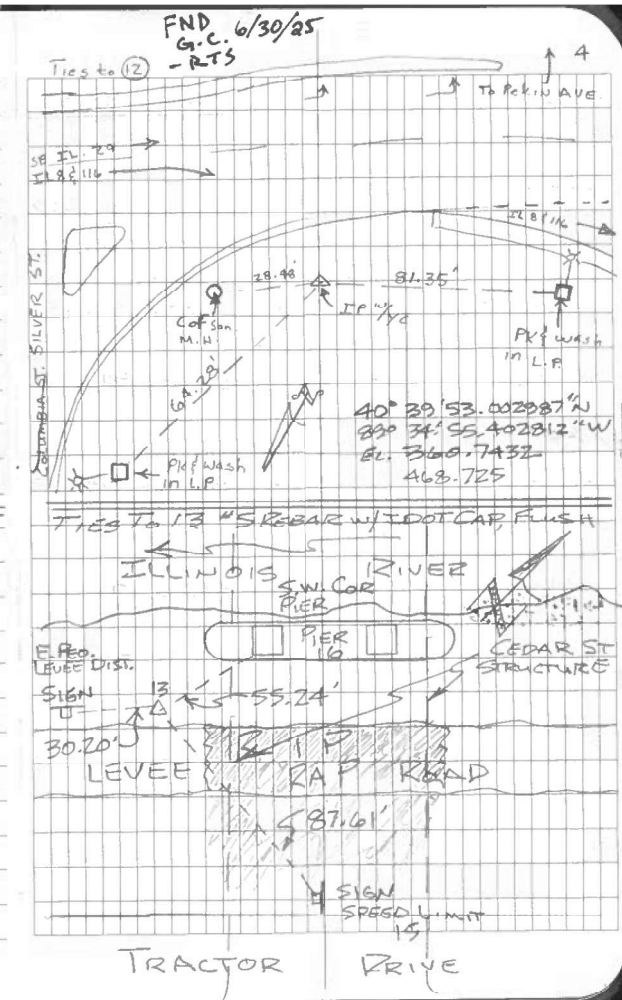 FND 6/30/25
G.C.
- RTS
4
Ties to 12
To Pekin AVE.
SB IL. 29
IL 8 & 116
IL 8 & 116
COLUMBIA ST. SILVER ST.
28.48'
81.35'
C of San
M.H.
IP w/YC
PK & Wash
in L.P.
64.28'
40° 39' 53.002987" N
89° 34' 55.402812" W
EL. 360.7432
468.725
PK & Wash
in L.P.
TIES TO 13 #5 REBAR W/ IDOT CAP, FLUSH
ILLINOIS RIVER
S.W. COR
PIER
PIER
16
E. PEO.
LEVEE DIST.
SIGN
CEDAR ST
STRUCTURE
13
55.24'
30.20'
RIP
LEVEE RAP ROAD
87.61'
SIGN
SPEED LIMIT
15
TRACTOR DRIVE